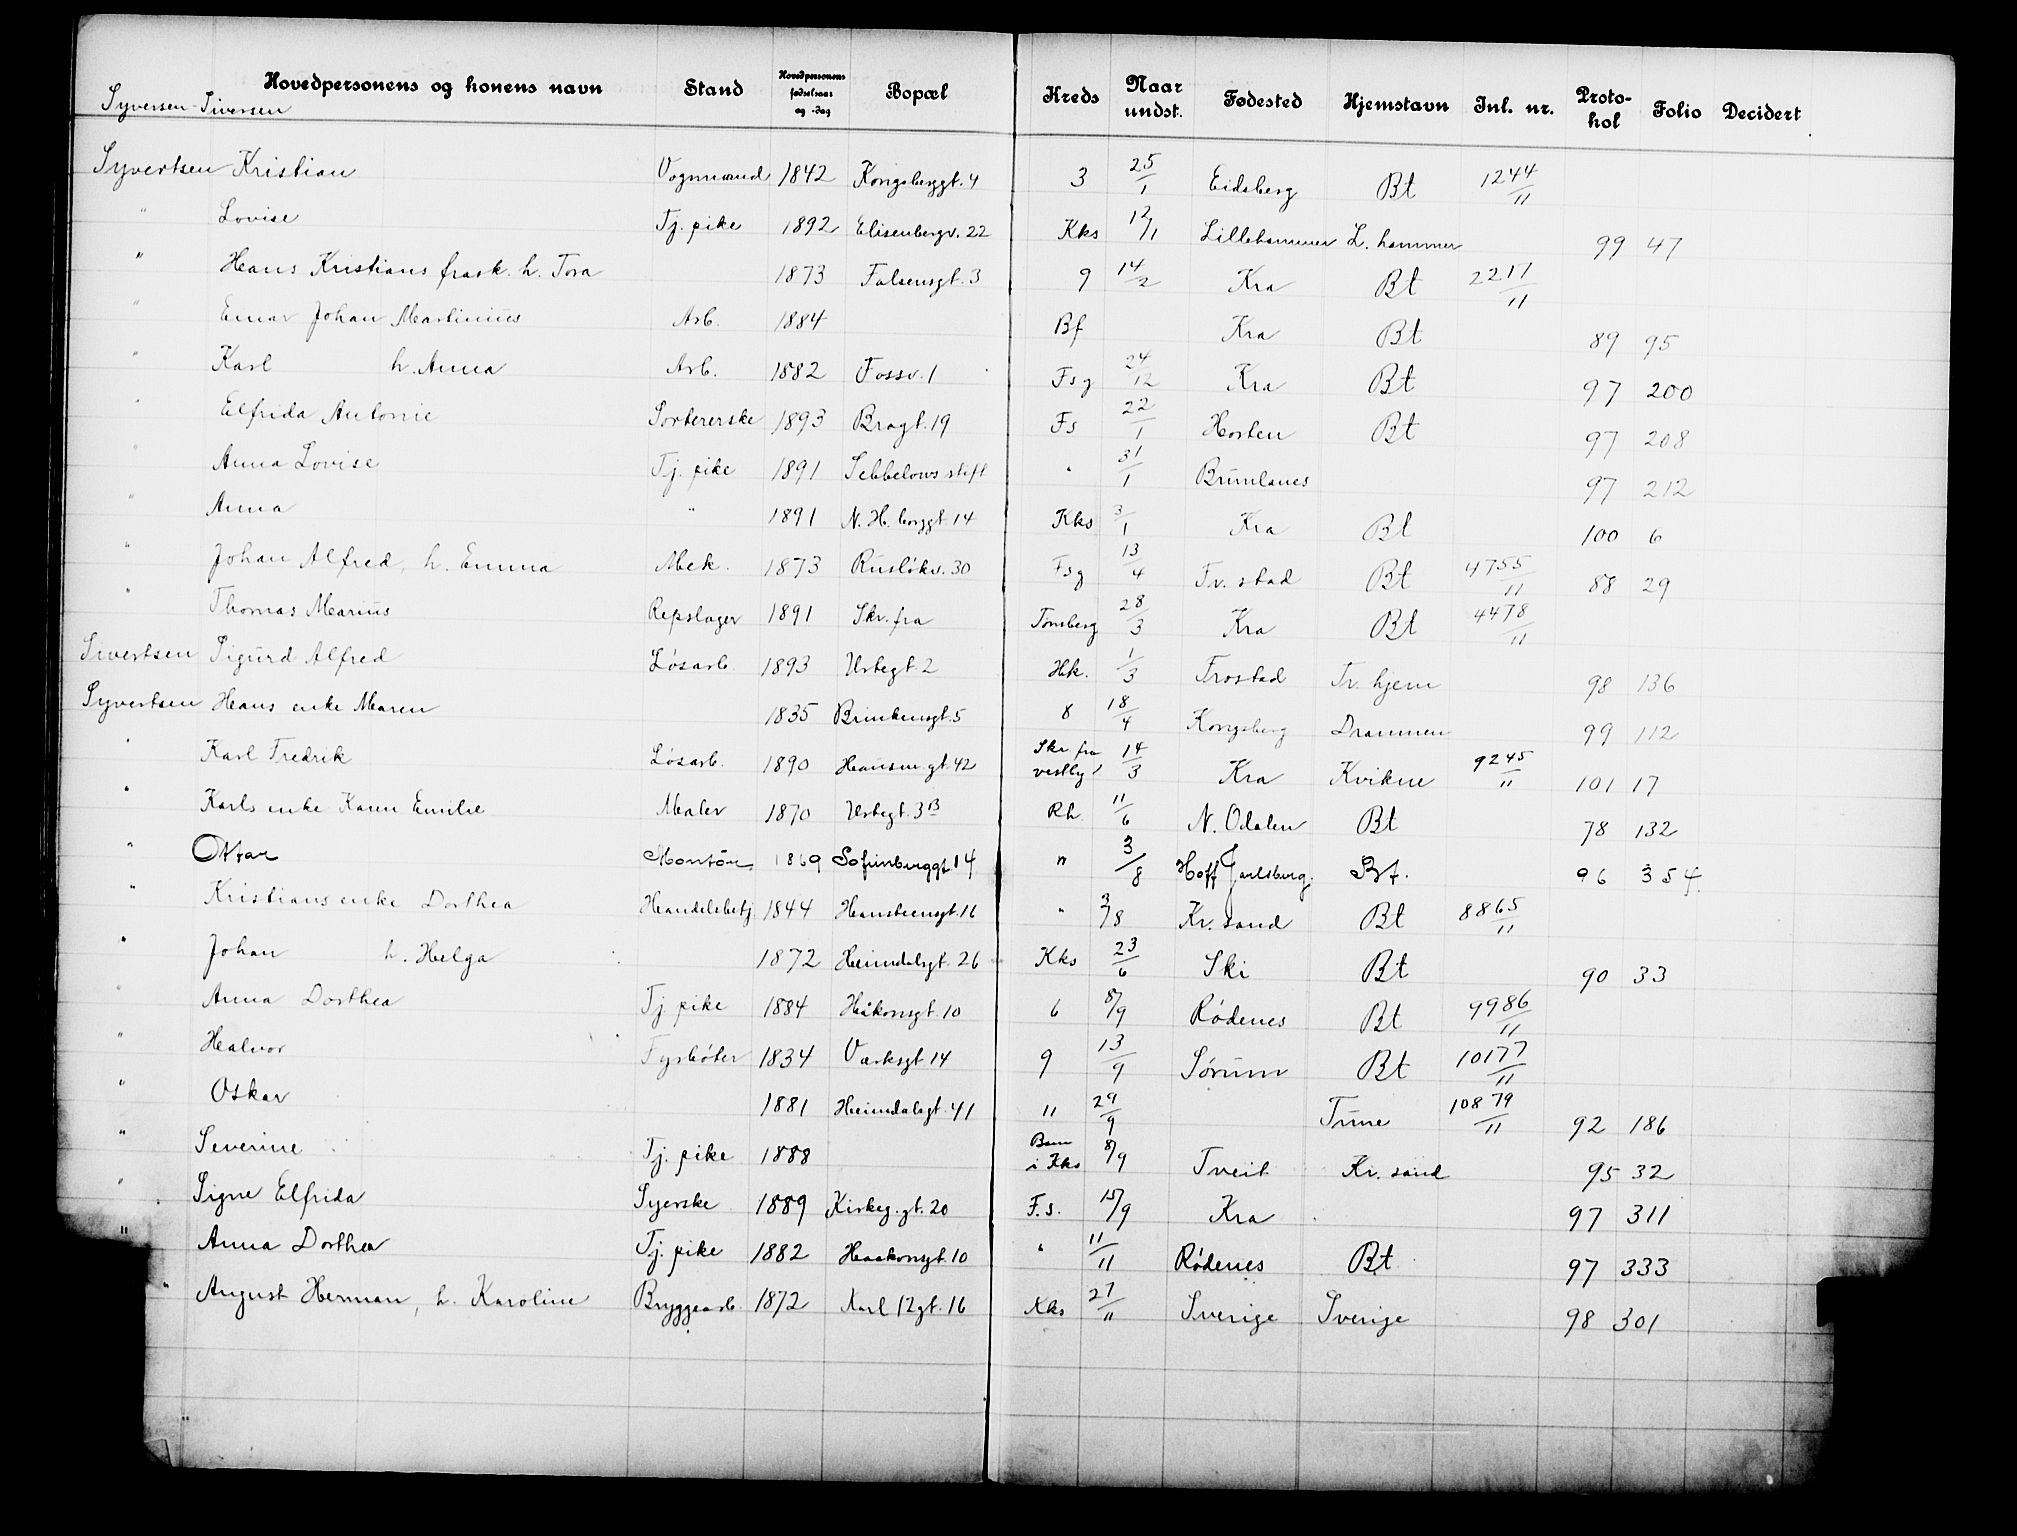 Hovedpersonens og konens navn Stand Hovedpersonens fødselsaar og -dag Bopæl Kreds Naar undst. Fødested Hjemstavn Inl. nr. Protokol Folio Decidert
Syversen - Siversen
Syvertsen Kristian Vognmand 1842 Kongsberggt. 4 3 25/1 Eidsberg Bt 1244/11
" Lovise Tj. pike 1892 Elisenbergv. 22 Kks 12/1 Lillehammer L. hammer 99 47
" Hans Kristians frask. h. Tora 1873 Falsensgt. 3 9 14/2 Kra Bt 2217/11
" Einar Johan Martinius Arb. 1884 Bf Kra Bt 89 95
" Karl h. Anna Arb. 1882 Fossv. 1 Fsg 24/12 Kra Bt 97 200
" Elfrida Antonie Sortererske 1893 Bragt. 19 Fs 22/1 Horten Bt 97 208
" Anna Lovise Tj. pike 1891 Sebbelows stift " 31/1 Brunlanes 97 212
" Anna " 1891 N. H. berggt 14 Kks 3/1 Kra Bt 100 6
" Johan Alfred, h. Emma Mek. 1873 Ruseløkv. 30 Fsg 13/4 Fr. stad Bt 4755/11 88 29
" Thomas Marius Repslager 1891 Skr. fra Tønsberg 28/3 Kra Bt 4478/11
Sivertsen Sigurd Alfred Løsarb. 1893 Urtegt. 2 Hk. 1/3 Frostad Fr. hjem 98 136
Syvertsen Hans enke Maren 1835 Brinkensgt. 5 8 18/4 Kongsberg Drammen 99 112
" Karl Fredrik Løsarb. 1890 Hausm. gt. 42 Skr fra vestby 14/3 Kra Kvikne 9245/11 101 17
" Karls enke Karen Emilie Maler 1870 Urtegt. 3B Rh 11/6 N. Odalen Bt 78 132
" Ottar Montør 1869 Sofienberggt 14 " 3/8 Hoff Jarlsberg. Bt. 96 354.
" Kristians enke Dorthea Handelsbetj. 1844 Hansteensgt. 16 " 3/8 Kr. sand Bt 8865/11
" Johan h. Helga 1872 Heimdalsgt. 26 Kks 23/6 Ski Bt 90 33
" Anna Dorthea Tj pike 1884 Håkonsgt. 10 6 8/9 Rødenes Bt 9986/11
" Halvor Fyrbøter 1834 Verksgt. 14 9 13/9 Sørum Bt 10177/11
" Oskar 1881 Heimdalsgt. 41 11 29/9 Tune 10879/11 92 186
" Severine Tj. pike 1888 Barn i Kks 8/9 Tveit Kr. sand 95 32
" Signe Elfrida Syerske 1889 Kirkeg. gt. 20 F.s. 15/9 Kra 97 311
" Anna Dorthea Tj. pike 1882 Haakonsgt. 10 " 11/11 Rødenes Bt 97 333
" August Herman, h. Karoline Bryggearb. 1872 Karl 12 gt. 16 Kks 27/11 Sverige Sverige 98 301